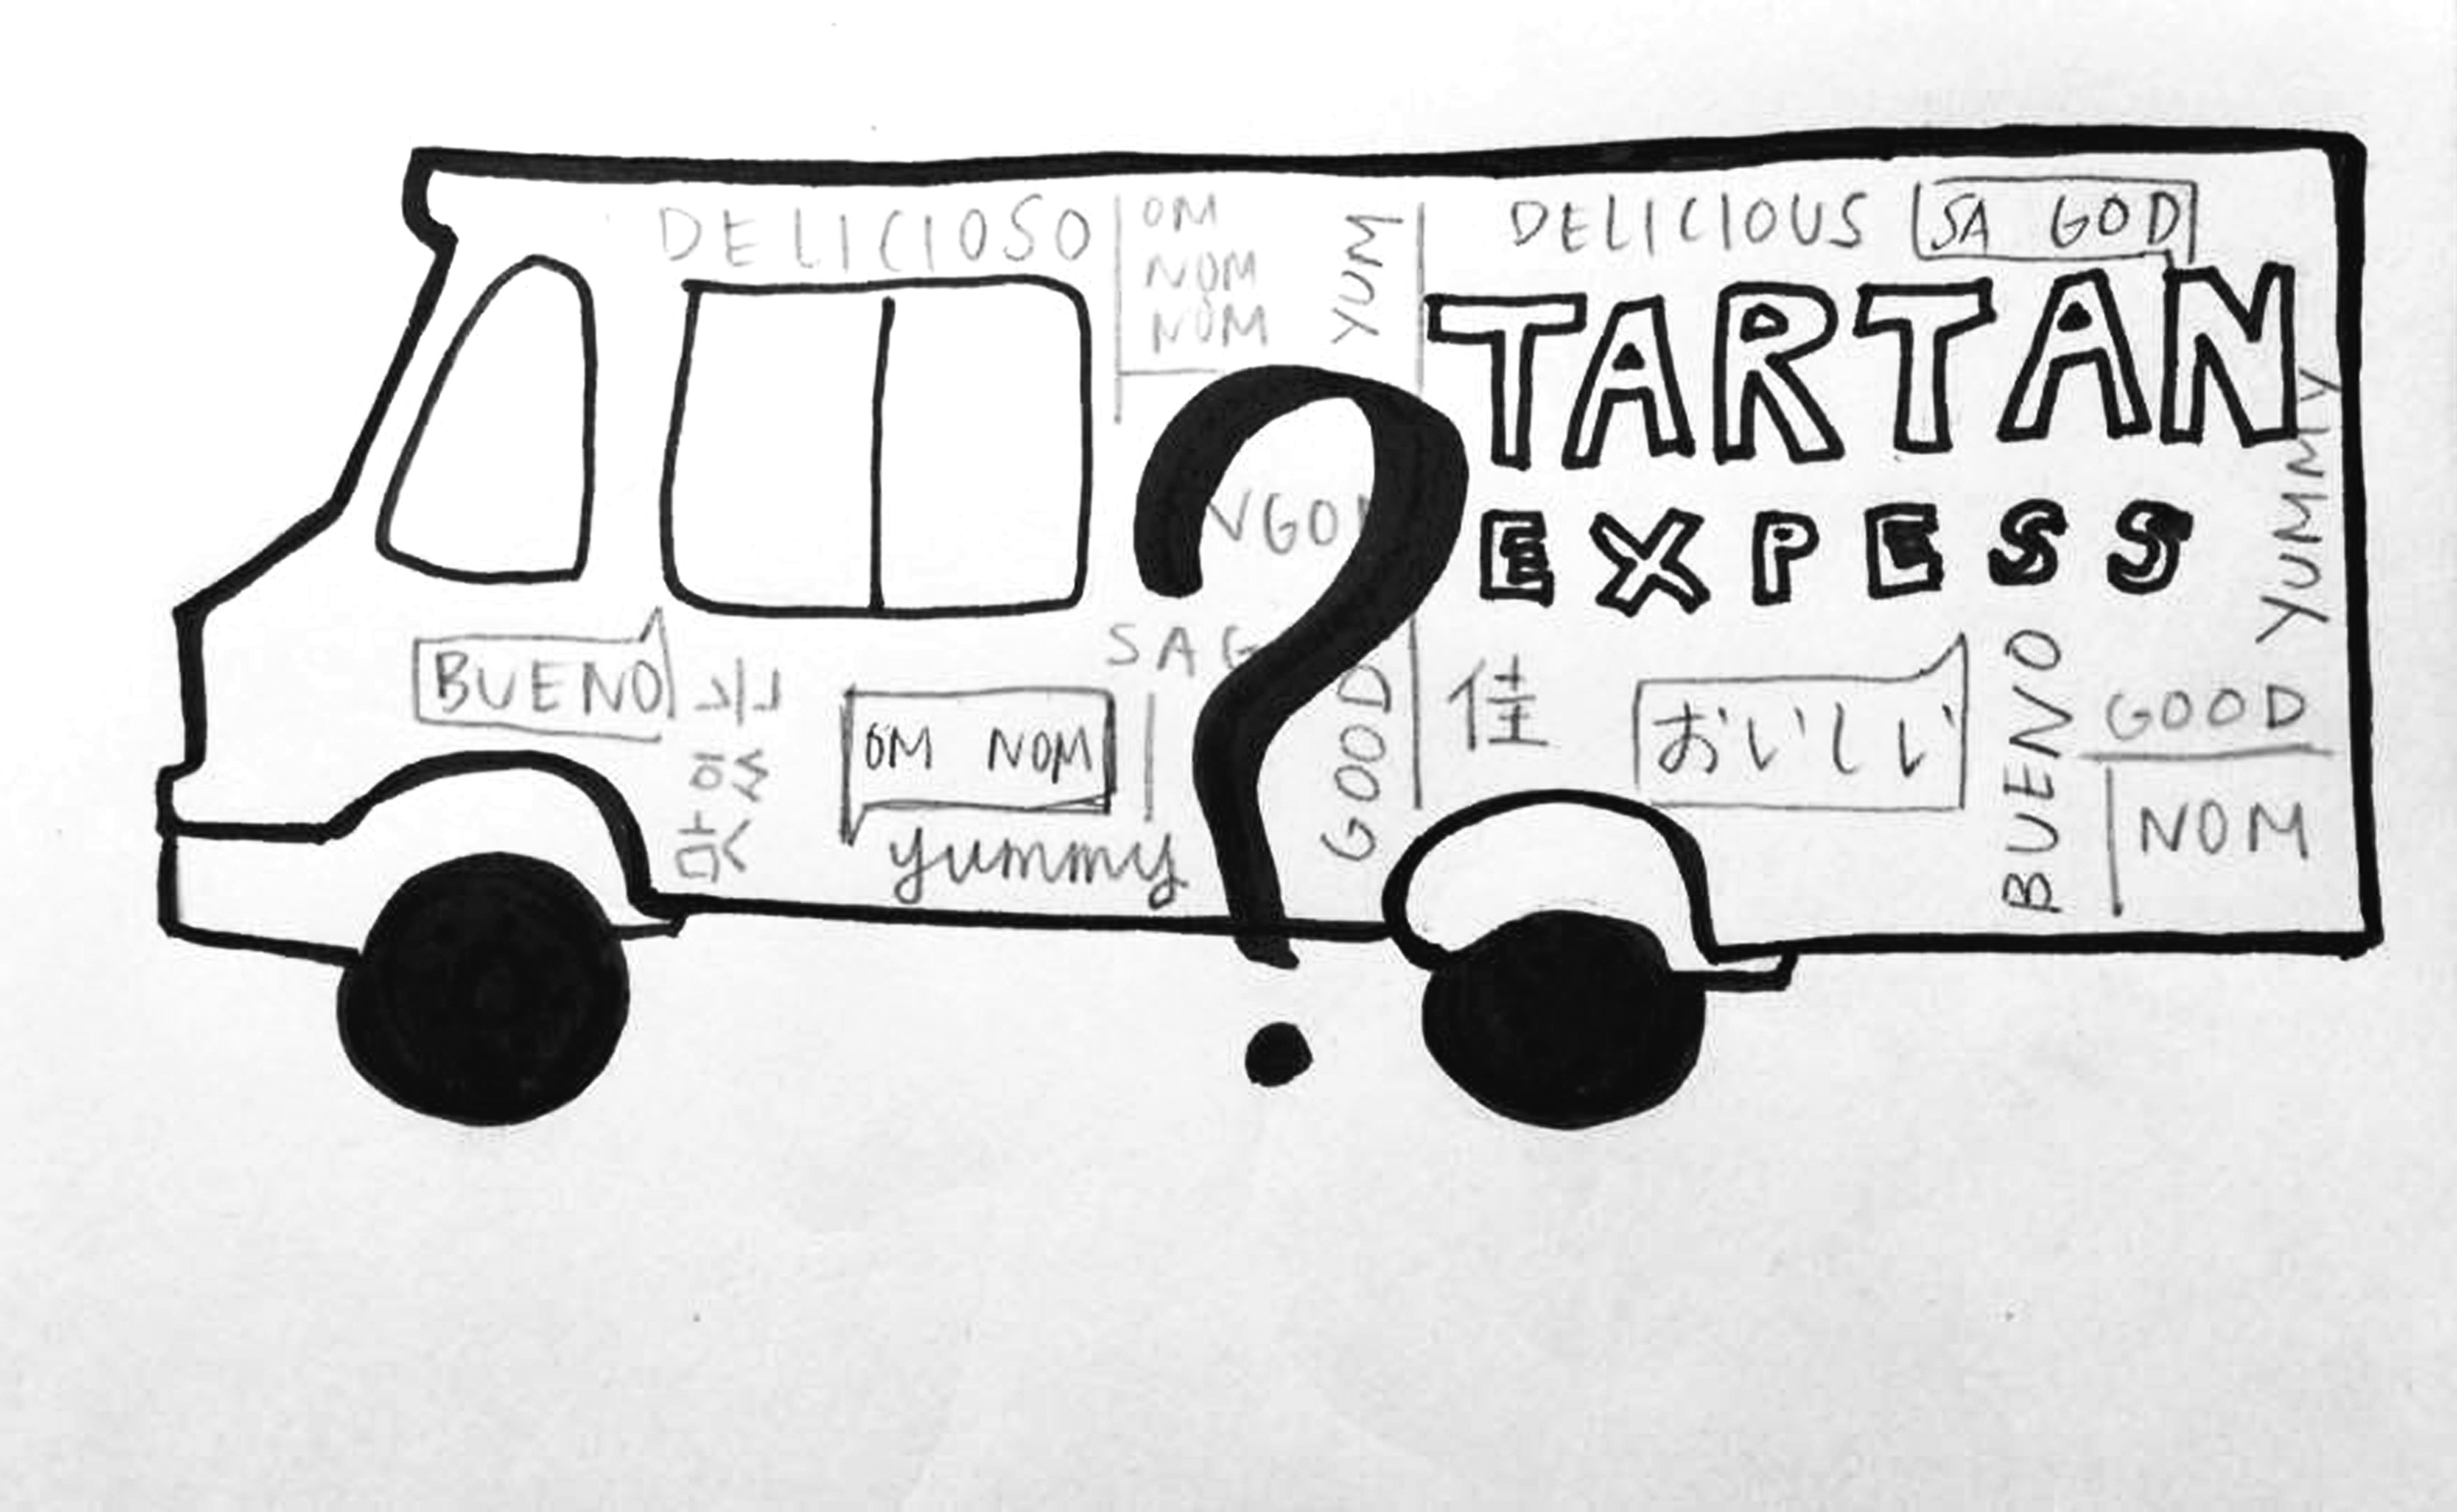 DELICIOSO
OM
NOM
NOM
YUM
DELICIOUS
SA GOD
TARTAN
EXPESS
YUMMY
BUENO
OM NOM
yummy
GOOD
佳
おいしい
BUENO
GOOD
NOM